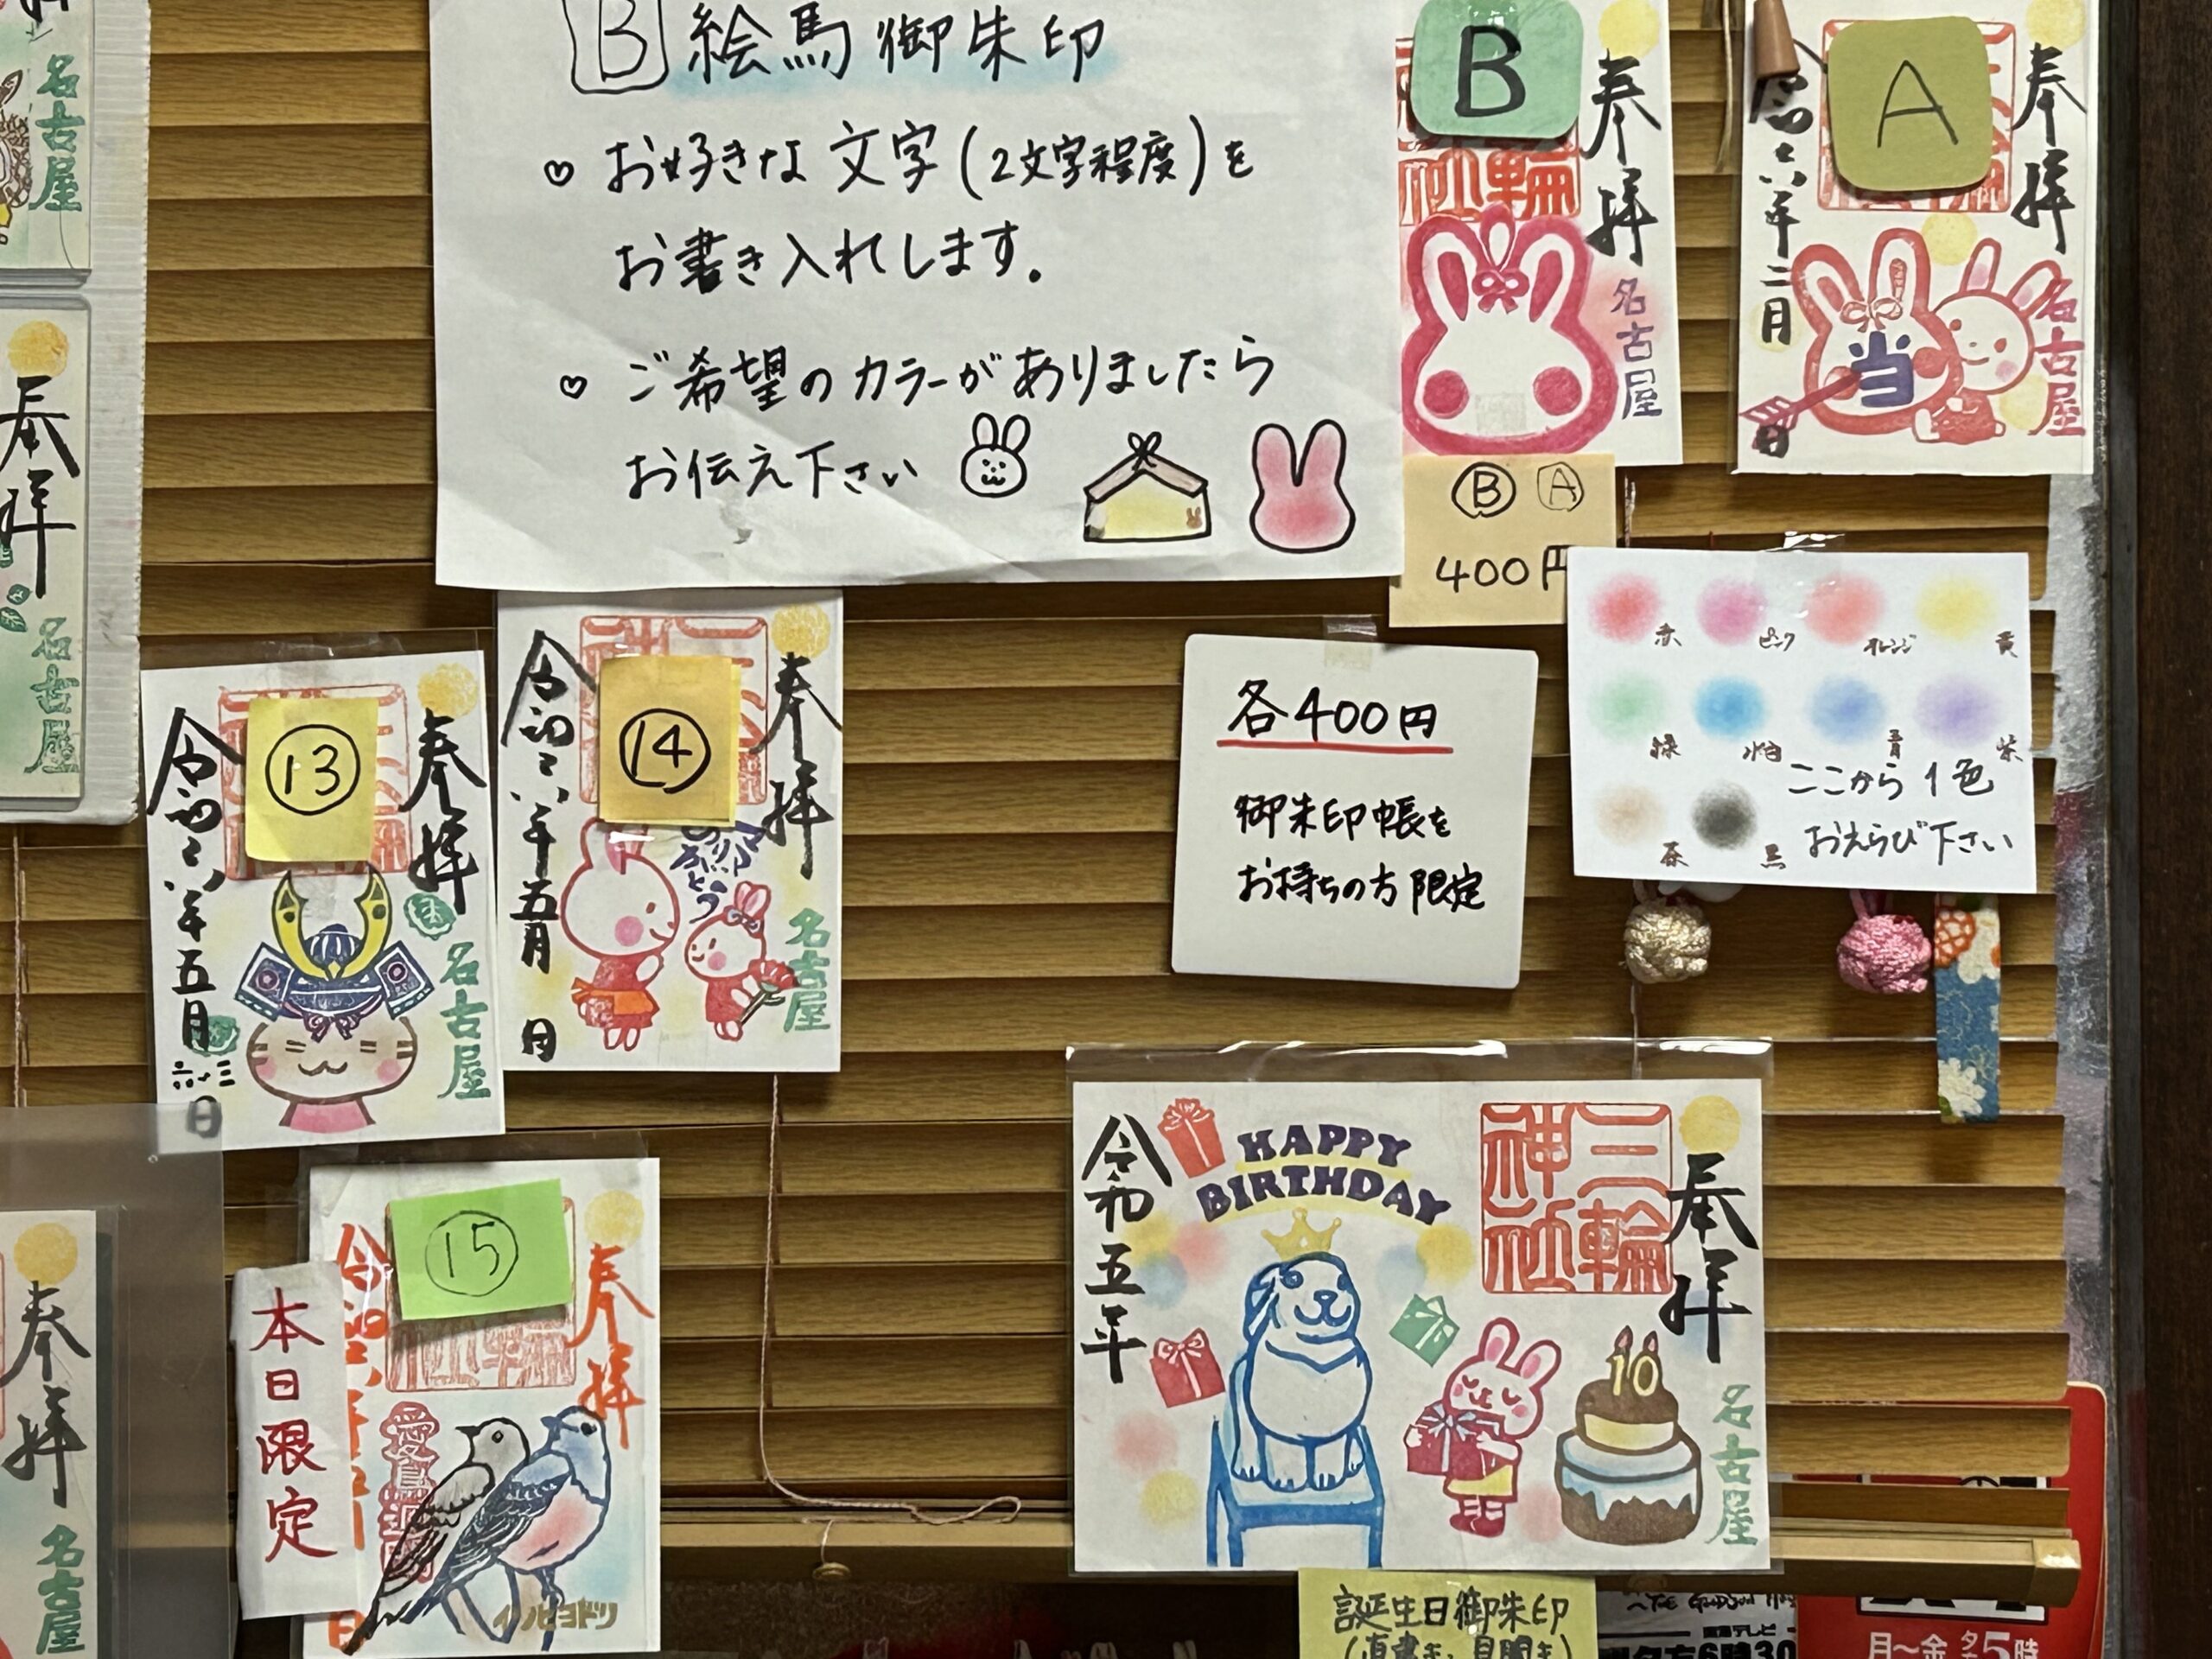 B 絵馬御朱印
♡ お好きな文字(2文字程度)を
お書き入れします。
♡ ご希望のカラーがありましたら
お伝え下さい
B
奉拝
三輪神社
名古屋
A
奉拝
令和六年二月
日
当
名古屋
Ⓑ Ⓐ
400円
赤 ピンク オレンジ 黄
緑 水色 青 紫
茶 黒
ここから1色
おえらび下さい
各400円
御朱印帳を
お持ちの方限定
名古屋
奉拝
名古屋
⑬
奉拝
令和六年五月
日
名古屋
⑭
奉拝
令和六年五月
日
ありがとう
名古屋
⑮
奉拝
本日限定
イソヒヨドリ
奉拝
名古屋
奉拝
三輪神社
HAPPY
BIRTHDAY
令和五年
10
名古屋
誕生日御朱印
(直書き、見開き)
月～金 夕5時